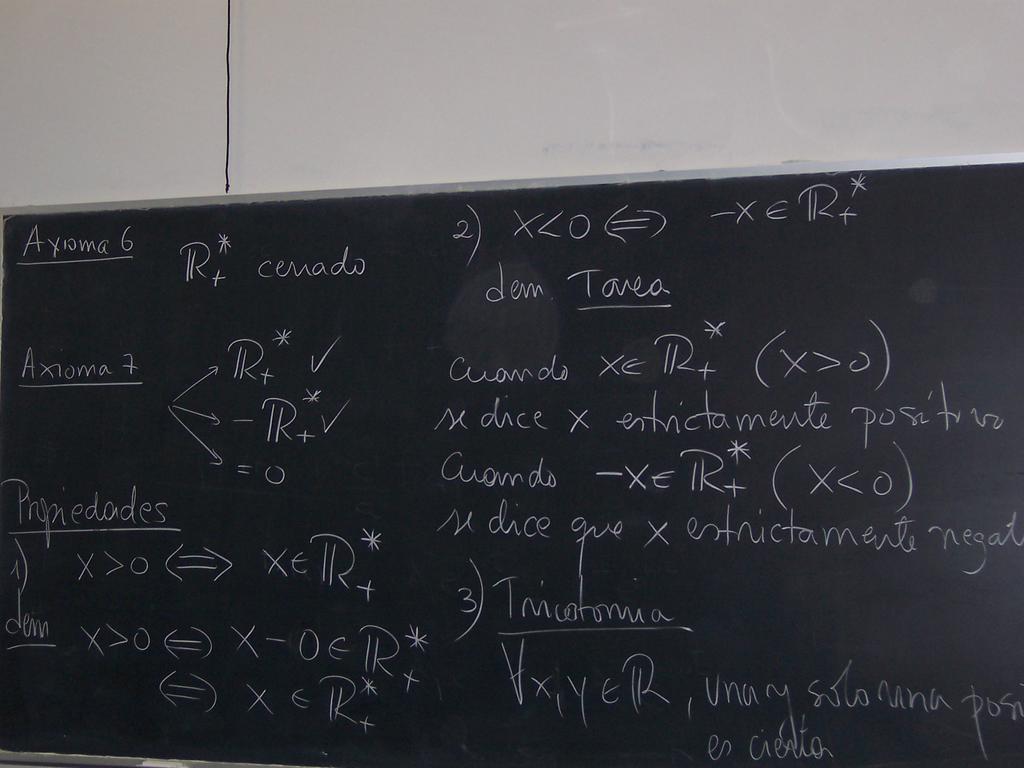 Axioma 6
ℝ₊* cerrado
Axioma 7
ℝ₊* ✓
-ℝ₊* ✓
= 0
Propiedades
1) x>0 ⇔ x∈ℝ₊*
dem
x>0 ⇔ x-0∈ℝ₊*
⇔ x∈ℝ₊*
2) x<0 ⇔ -x∈ℝ₊*
dem Tarea
cuando x∈ℝ₊* (x>0)
se dice x estrictamente positivo
Cuando -x∈ℝ₊* (x<0)
se dice que x estrictamente negat
3) Tricotomia
∀x,y∈ℝ, una y solo una posi
es cierta